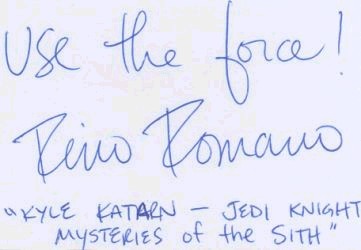 Use the force!
Rino Romano
"KYLE KATARN – JEDI KNIGHT
MYSTERIES of the SITH"